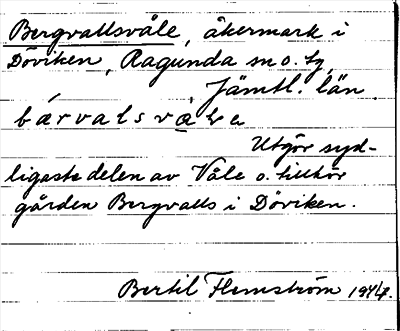 Bergvallsvåle, åkermark i
Döviken, Ragunda sn o. tg,
Jämtl. län.
Utgör syd-
ligaste delen av Våle o. tillhör
gården Bergvalls i Döviken.
Bertil Flemström